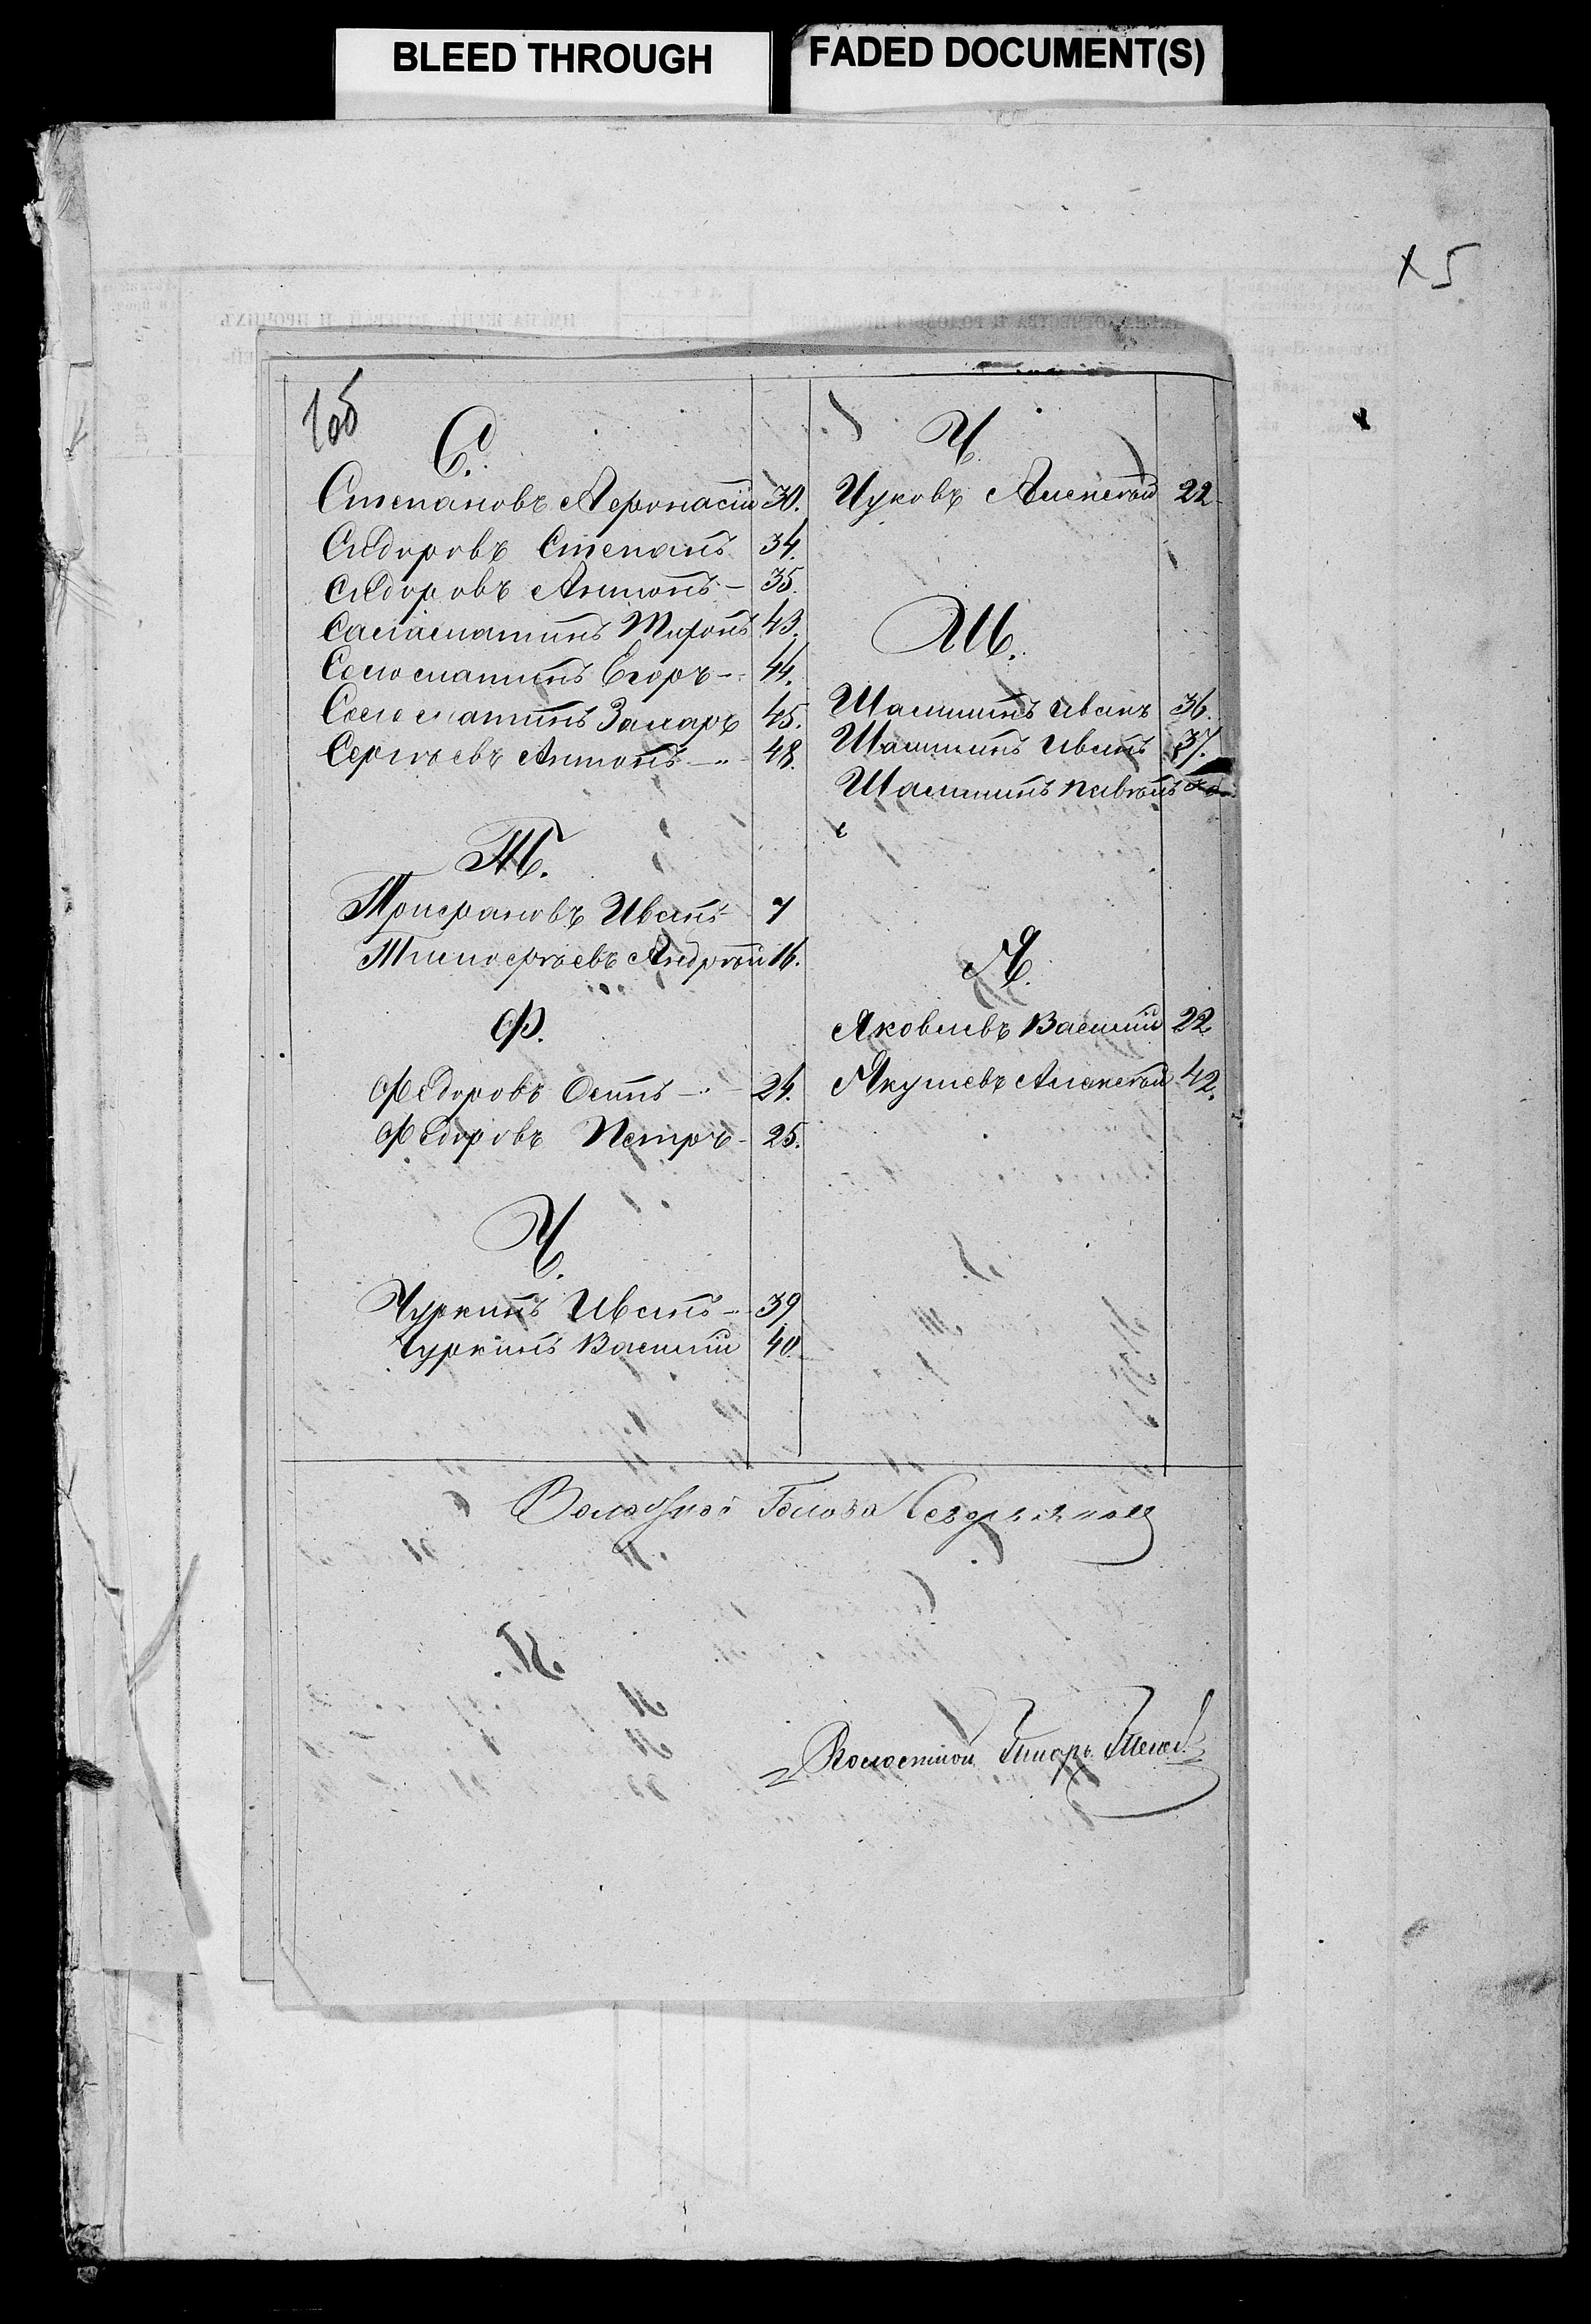 BLEED THROUGH
FADED DOCUMENT(S)
х 5
106
С.
Степановъ Афонасій 30.
Сидоровъ Степанъ 34.
Сидоровъ Антонъ – 35.
Саласматинъ Миронъ 43.
Соласматинъ Егоръ – 44.
Соласматинъ Захаръ 45.
Сергѣевъ Антонъ – 48.
Т.
Трифановъ Иванъ 7
Тимофѣевъ Андрѣй 16.
Ф.
Федоровъ Осипъ – 24.
Федоровъ Петръ – 25.
Ч.
Чуркинъ Иванъ – 39
Чуркинъ Василій 40
Ч.
Чуковъ Алексѣй 22
Ш.
Шамшинъ Иванъ 36.
Шамшинъ Иванъ 37.
Шамшинъ
Я.
Яковлевъ Василій 22
Якушевъ Алексѣй 42.
Волостной Голова
Волостной Писарь